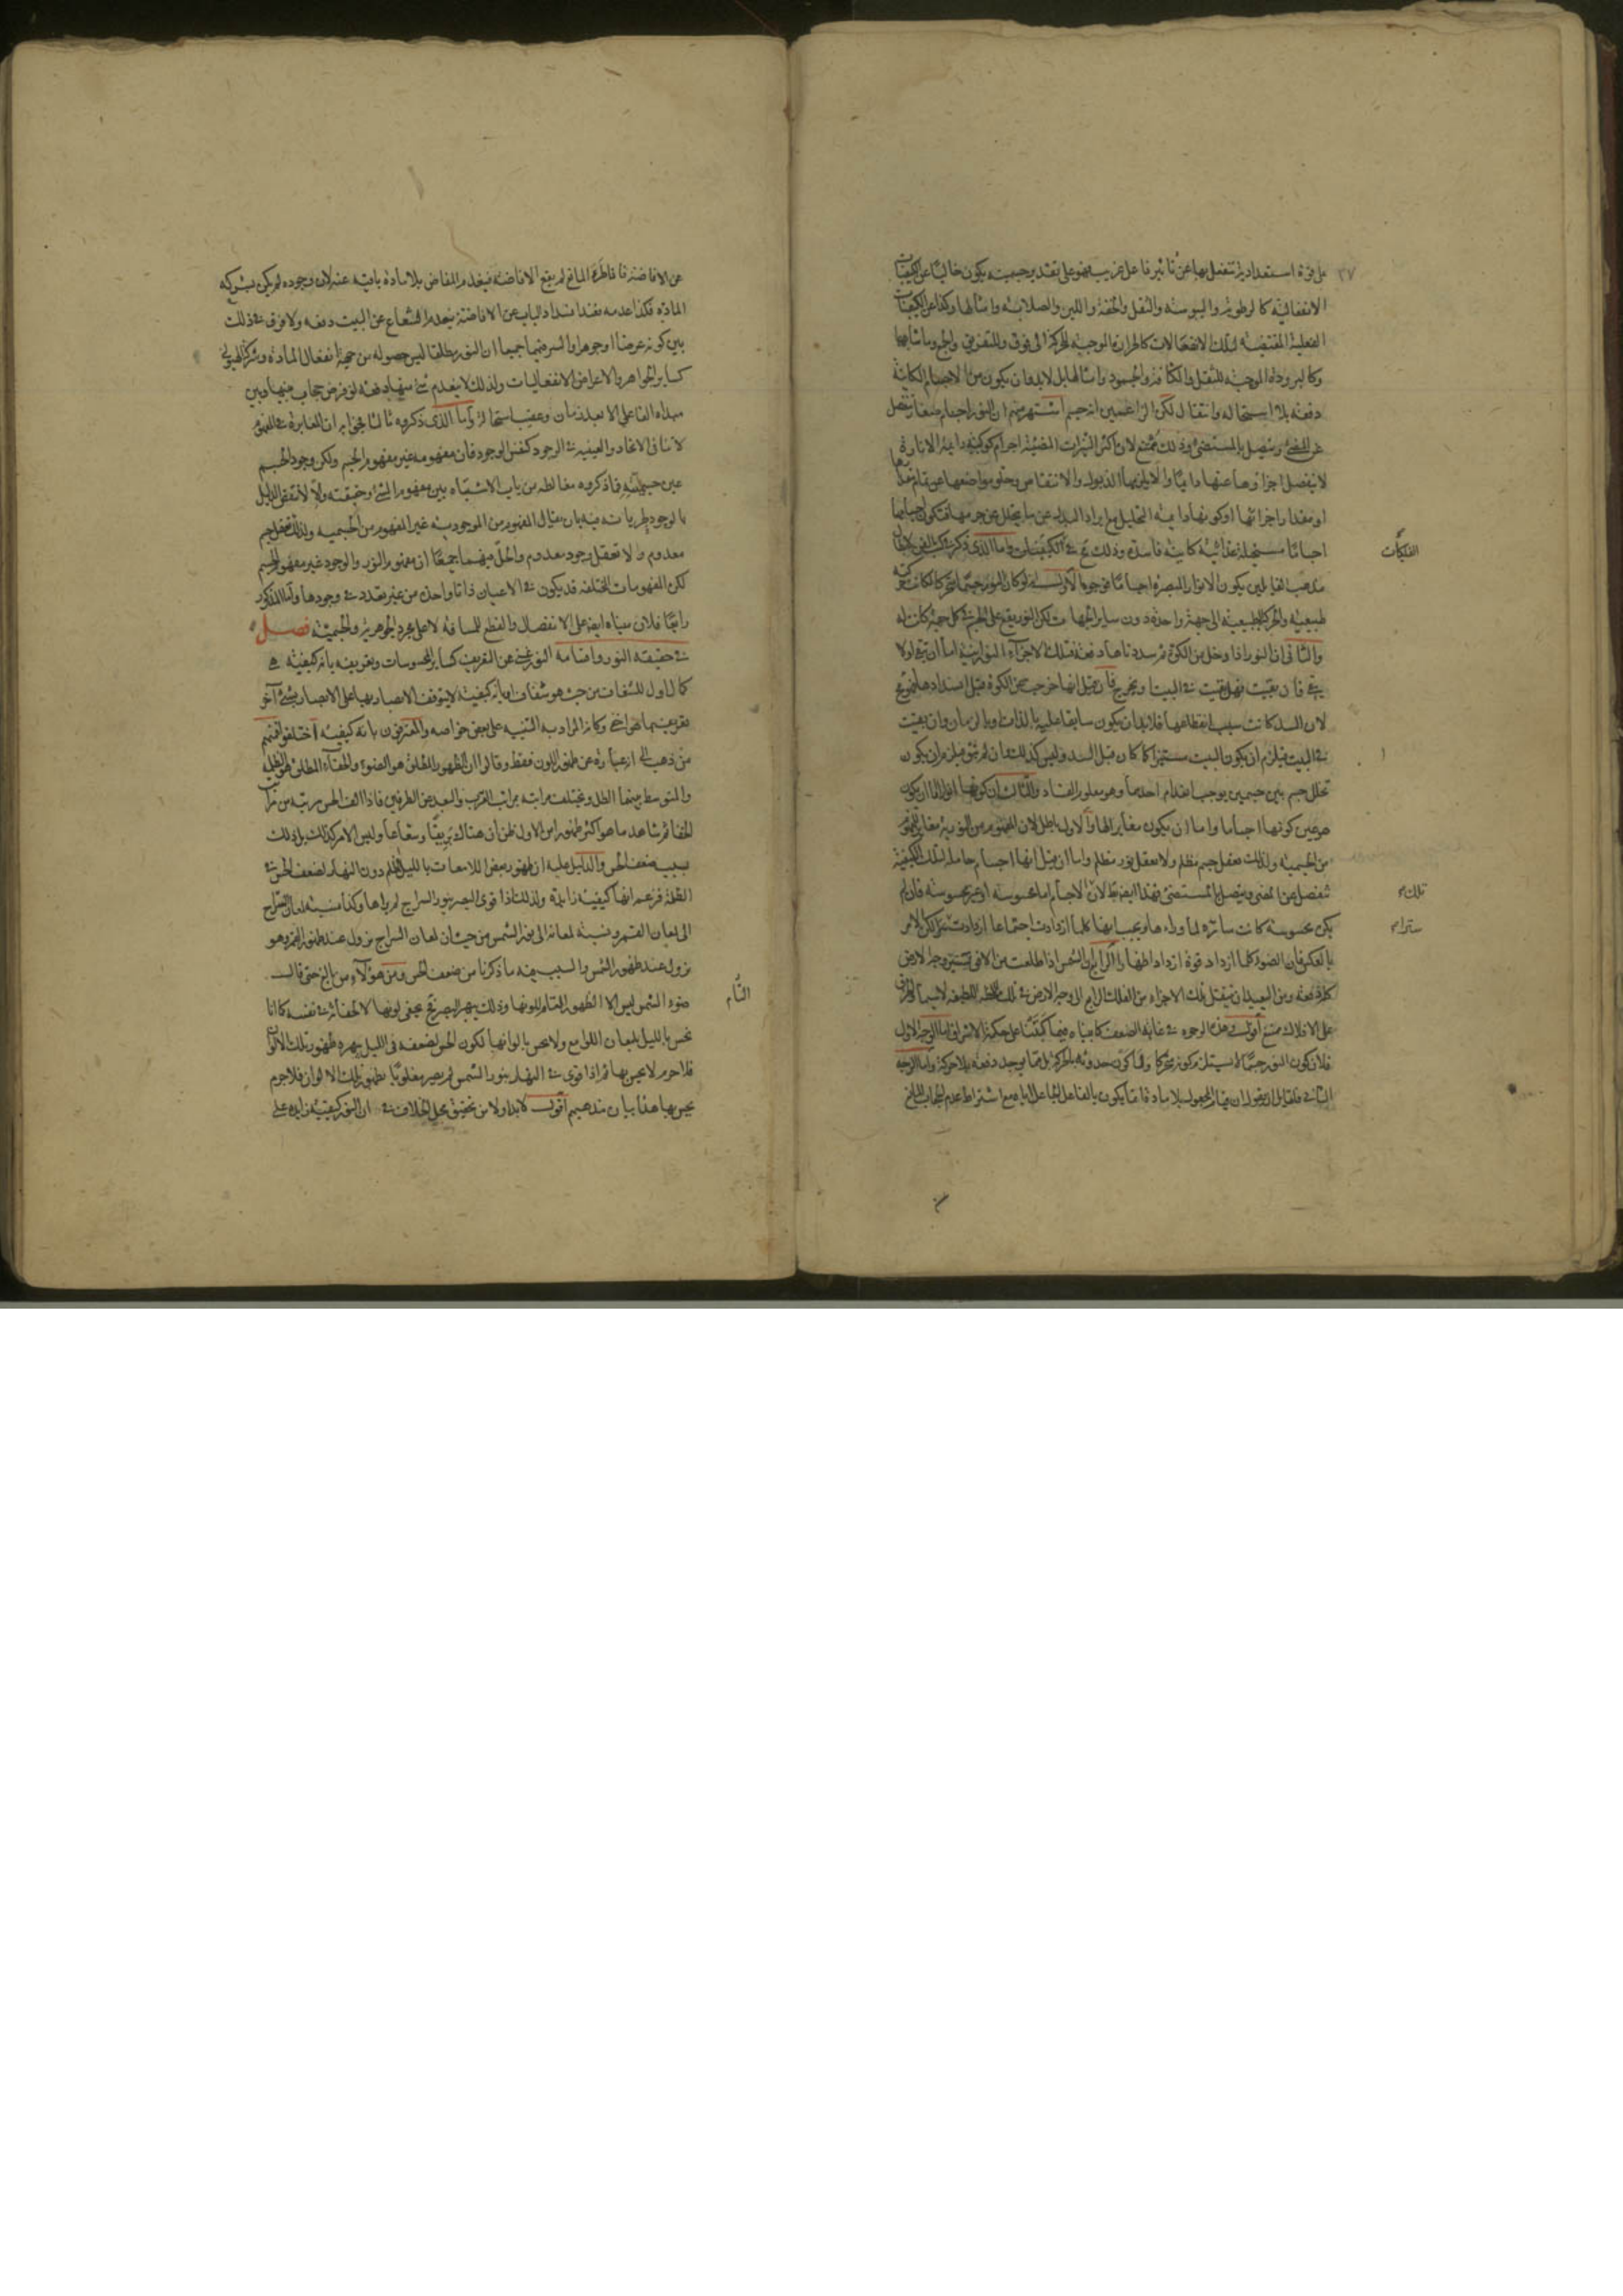 على قوة استعدادية تنفعل بها عن تأثير فاعل غريب فهو على تقدير جسميته يكون خاليا عن الكيفيات
الانفعالية كالرطوبة واليبوسة والثقل والخفة واللين والصلابة وامثالها وكذا عن الكيفيات
الفعلية المقتضية لتلك الانفعالات كالحرارة الموجبة للحركة الى فوق وللتفريق والجمع وما شابهها
وكالبرودة الموجبة للثقل والكثافة والجمود وامثالها بل لابد وان يكون من الاجسام الكائنة
دفعة بلا استحالة وانتقال لكن الزاعمين انه جسم اشتهر منهم ان النور اجسام صغار تنفصل
عن المضئ وتتصل بالمستضئ وذلك ممتنع لان اكثر النيرات المضيئة اجرام كوكبية دائمة الانارة
لا ينفصل اجزاؤها عنها دائما والا يلزمها الذبول والانتقاص وخلو مواضعها عن تمام مقدارها
او مقدار اجزائها او كونها دائمة التحليل مع ايراد البدل عن ما يتحلل عن جرمها فتكون اجسامها
اجساما مستحيلة غذائية كائنة فاسدة وذلك مح في الكيفيات واما الذي ذكر في كتب الفن لابطال
الفلكيات
مذهب القايلين بكون الانوار المبصرة اجساما فوجوه الاول انه لو كان النور جسما متحركا لكانت حركته
طبيعية والحركة الطبيعية الى جهة واحدة دون ساير الجهات لكن النور يقع على الجسم في كل جهة كانت له
والثاني ان النور اذا دخل من الكوة ثم سددناها دفعة فتلك الاجزاء النورانية اما ان تبقى او لا
يبقى فان بقيت فهل بقيت في البيت او يخرج فان قيل انها خرجت عن الكوة قبل انسدادها فهو مح
لان السد كانت سبب انقطاعها فلابد ان يكون سابقا عليه بالذات او بالزمان وان بقيت
في البيت فيلزم ان يكون البيت مستنيرا كما كان قبل السد وليس كذلك وان لم تبق فيلزم ان يكون
تخلل جسم بين جسمين يوجب انعدام احدهما وهو معلوم الفساد والثالث ان كونها انوارا اما ان يكون
هو عين كونها اجساما واما ان يكون مغايرا لها والاول باطل لان المفهوم من النورية مغاير للمفهوم
من الجسمية ولذلك يعقل جسم مظلم ولا يعقل نور مظلم واما ان قيل انها اجسام حاملة لتلك الكيفية
تنفصل عن المضئ ويتصل بالمستضئ فهذا ايضا بط لان الاجسام اما محسوسة او غير محسوسة فان لم
تلك
يكن محسوسة كانت ساترة لما وراءها ويجب انها كلما ازدادت اجتماعا ازدادت سترا لكن الامر
سترا
بالعكس فان الضوء كلما ازداد قوة ازداد اظهارا الرابع ان الشمس اذا طلعت من الافق يستنير وجه الارض
كله دفعة ومن البعيد ان ينتقل تلك الاجزاء من الفلك الرابع الى وجه الارض في تلك اللحظة اللطيفة لاسيما والخرق
على الافلاك ممتنع اقول هذه الوجوه في غاية الضعف كما بيناه فيما كتبنا على حكمة الاشراق اما الوجه الاول
فلان كون النور جسما لا يستلزم كونه متحركا ولا كون حدوثه بالحركة بل مما يوجد دفعة بلا حركة واما الوجه
الثاني فلقائل ان يقول ان قيام المجعول بلا مادة انما يكون بالفاعل الجاعل اياه مع اشتراط عدم الحجاب المانع
عن الافاضة فاذا طرء المانع لم يقع الافاضة فينعدم المفاض بلا مادة باقية عنه لان وجوده لم يكن بشركة
المادة فكذا عدمه فعند انسداد الباب عن الافاضة ينعدم الشعاع عن البيت دفعة ولا فرق في ذلك
بين كونه عرضا او جوهرا والسر فيهما جميعا ان النور مطلقا ليس حصوله من جهة انفعال المادة وشركة الهيولى
كساير الجواهر والاعراض الانفعاليات ولذلك لا ينعدم شئ منها دفعة لو فرض حجاب بينها وبين
مبداه الفاعلي الا بعد زمان وعقيب استحالة واما الذي ذكروه ثالثا فجوابه ان المغايرة في المفهوم
لا تنافي الاتحاد والعينية في الوجود كنفس الوجود فان مفهومه غير مفهوم الجسم ولكن وجود الجسم
عين جسميته فما ذكروه مغالطة من باب الاشتباه بين مفهوم الشئ وحقيقته والا لانتقض الدليل
بالوجود لجريانه فيه بان يقال المفهوم من الموجودية غير المفهوم من الجسمية ولذلك يعقل جسم
معدوم ولا تعقل وجود معدوم والحل فيهما جميعا ان مفهوم النور والوجود غير مفهوم الجسم
لكن المفهومات المختلفة قد يكون في الاعيان ذاتا واحدة من غير تعدد في وجودها واما المذكور
رابعا فلان مبناه ايضا على الانفصال والقطع للمسافة لا على مجرد الجوهرية والجسمية فصل
في حقيقة النور واقسامه النور غني عن التعريف كساير المحسوسات وتعريفه بانه كيفية هي
كمال اول للشفاف من حيث هو شفاف او بانه كيفية لا يتوقف الابصار بها على الابصار بشئ آخر
تعريف بما هو اخفى وكان المراد به التنبيه على بعض خواصه والمعترفون بانه كيفية اختلفوا فمنهم
من ذهب الى انه عبارة عن ظهور اللون فقط وقالوا ان الظهور المطلق هو الضوء والخفاء المطلق هو الظلمة
والمتوسط بينهما الظل ويختلف مراتبه بمراتب القرب والبعد عن الطرفين فاذا الف الحس مرتبة من مراتب
الخفا ثم شاهد ما هو اكثر ظهورا من الاول ظن ان هناك بريقا وشعاعا وليس الامر كذلك بل ذلك
بسبب ضعف الحس والدليل عليه ان ظهور بعض اللامعات بالليل المظلم دون النهار لضعف الحس في
الظلمة فزعم انها كيفية زايدة ولذلك اذا قوى البصر بنور السراج لم يراها وكذا نسبة لمعان السراج
الى لمعان القمر ونسبة لمعانه الى نور الشمس من حيث ان لمعان السراج يزول عند ظهور القمر وهو
يزول عند ظهور الشمس والسبب فيه ما ذكرنا من ضعف الحس ومن هؤلاء من بالغ حتى قال
ضوء الشمس ليس الا الظهور التام للونها وذلك يبهر البصر فح يخفى لونها لا لخفائه في نفسه كما انا
التام
نحس بالليل بلمعان اللوامع ولا نحس بالوانها لكون الحس لضعفه في الليل يبهره ظهور تلك الالوان
فلا جرم لا يحس بها ثم اذا قوى في النهار بنور الشمس لم يصر مغلوبا بظهور تلك الالوان فلا جرم
يحس بها هذا بيان مذهبهم اقول لابد اولا من تحقيق محل الخلاف في ان النور كيفية زايدة على